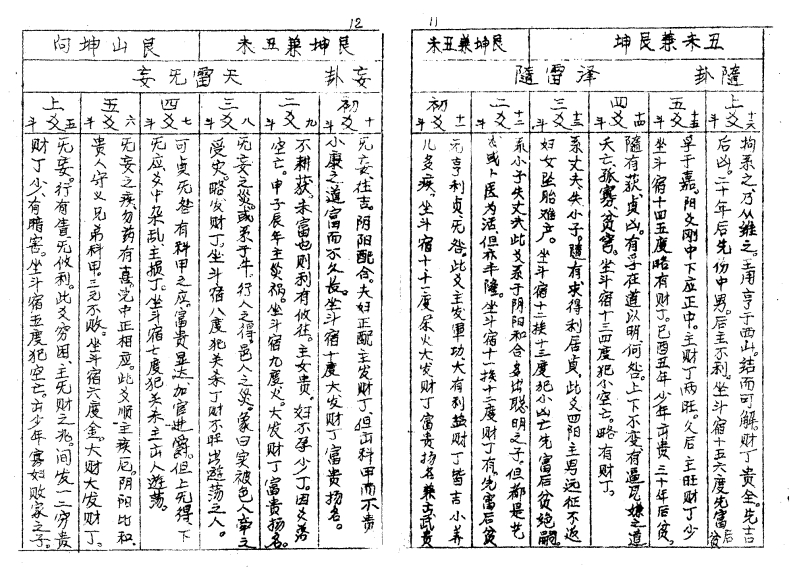 11
丑未兼艮坤
艮坤兼丑未
隨卦
澤雷隨
上爻
十六
斗
拘系之,乃从維之。主用亨于西山。結而可解。財丁貴全。先吉
后凶。二十年后先伤中男。后主不利。坐斗宿十五六度先富后貧
五爻
十五
斗
孚于嘉。阳爻剛中下应正中。主財丁两旺。久后主旺財丁少
坐斗宿十四五度略有財丁。巳酉丑年少年出貴三十年后貧。
四爻
十四
斗
隨有获,貞凶。有孚在道以明,何咎。上下不变有逼尾嫌之道
夭亡孤寡、貧窘。坐斗宿十三四度犯小空亡。略有財丁。
三爻
十三
斗
系丈夫,失小子。隨有求得利居貞。此爻四阳主男远征不返
妇女坠胎难产。坐斗宿十二接十三度犯小凶亡先富后貧绝嗣。
二爻
十二
斗
系小子失丈夫此爻系于阴阳和合名出聪明之子。但都是艺
术或卜医为活但亦丰隆。坐斗宿十一接十二度財丁有,先富后貧
初爻
十一
斗
无亨利貞无咎。此爻主发軍功、大有利益財丁皆吉小养
儿多疾。坐斗宿十十一度尿火大发財丁富貴扬名兼出武貴
12
艮坤兼丑未
艮山坤向
妄卦
天雷无妄
初爻
十
斗
无妄往吉阴阳配合。夫妇正配主发財丁。但出科甲而不貴
小康之道富而不久長。坐斗宿十度大发財丁富貴扬名。
二爻
九
斗
不耕获,未富也则利有攸往。主女貴。妇不孕少丁。因爻落
空亡。甲子辰年主災祸。坐斗宿九度火。大发財丁富貴扬名。
三爻
八
斗
无妄之災。或系于牛,行人之得,邑人之災。象曰实被色人牵之
受灾。略发財丁。坐斗宿八度犯关杀丁財不旺出遊荡之人。
四爻
七
斗
可貞无咎有科甲之应。富貴显达加官进爵。但上无得下
无应爻中杂乱,主损丁。坐斗宿七度犯关杀主出人遊荡。
五爻
六
斗
无妄之疾,勿药有喜。完中正相应。此爻順主疾厄。阴阳比和
貴人守义兄弟科甲。三元不败。坐斗宿六度金。大財大发財丁。
上爻
五
斗
无妄。行有眚无攸利。此爻穷困、主死財之兆。间发一二穷貴
財丁少、有暗害。坐斗宿五度犯空亡。出少年寡妇败家之子。